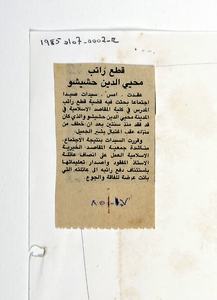 1985
قطع راتب
محيي الدين حشيشو
عقدت ، امس ، سيدات صيدا
اجتماعا بحثت فيه قضية قطع راتب
المدرس في كلية المقاصد الاسلامية في
المدينة محيي الدين حشيشو والذي كان
قد فقد منذ سنتين بعد ان خطف من
منزله عقب اغتيال بشير الجميل.
وقررت السيدات بنتيجة الاجتماع،
مناشدة جمعية المقاصد الخيرية
الاسلامية العمل على انصاف عائلة
الاستاذ المفقود واصدار تعليماتها
باستئناف دفع راتبه الى عائلته التي
باتت عرضة للفاقة والجوع.